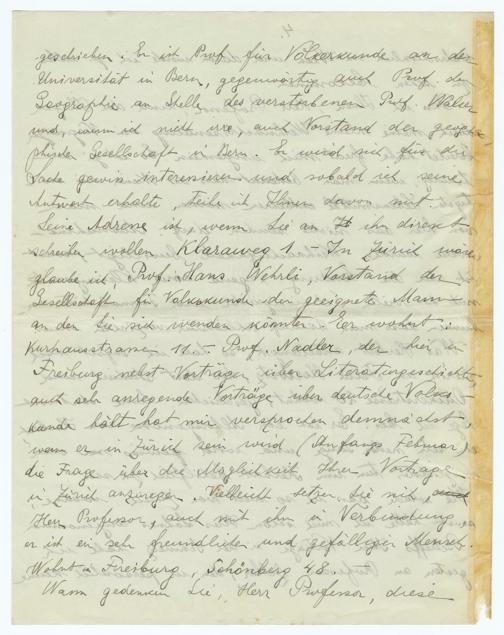 4.
geschrieben. Er ist Prof. für Völkerkunde an der
Universität in Bern, gegenwärtig auch Prof. der
Geographie an Stelle des verstorbenen Prof. Walser
und, wenn ich nicht irre, auch Vorstand der geogra-
phischen Gesellschaft in Bern. Er wird sich für die
Sache gewiss interessieren und sobald ich seine
Antwort erhalte, teile ich Ihnen davon mit.
Seine Adresse ist, wenn Sie an ihn direkt
schreiben wollen Klaraweg 1 – In Zürich wäre
glaube ich Prof. Hans Wehrli, Vorstand der
Gesellschaft für Volkskunde der geeignete Mann
an den Sie sich wenden könnten. Er wohnt:
Kurhausstrasse 11. – Prof. Nadler, der hier in
Freiburg nebst Vorträgen über Literaturgeschichte
auch sehr anregende Vorträge über deutsche Volks-
kunde hält hat mir versprochen demnächst,
wann er in Zürich sein wird (Anfangs Februar)
die Frage über die Möglichkeit Ihrer Vorträge
in Zürich anzuregen. Vielleicht setzen Sie sich,
Herr Professor, auch mit ihm in Verbindung
er ist ein sehr freundlicher und gefälliger Mensch.
Wohnt in Freiburg, Schönberg 48. –
Wann gedenken Sie, Herr Professor, diese